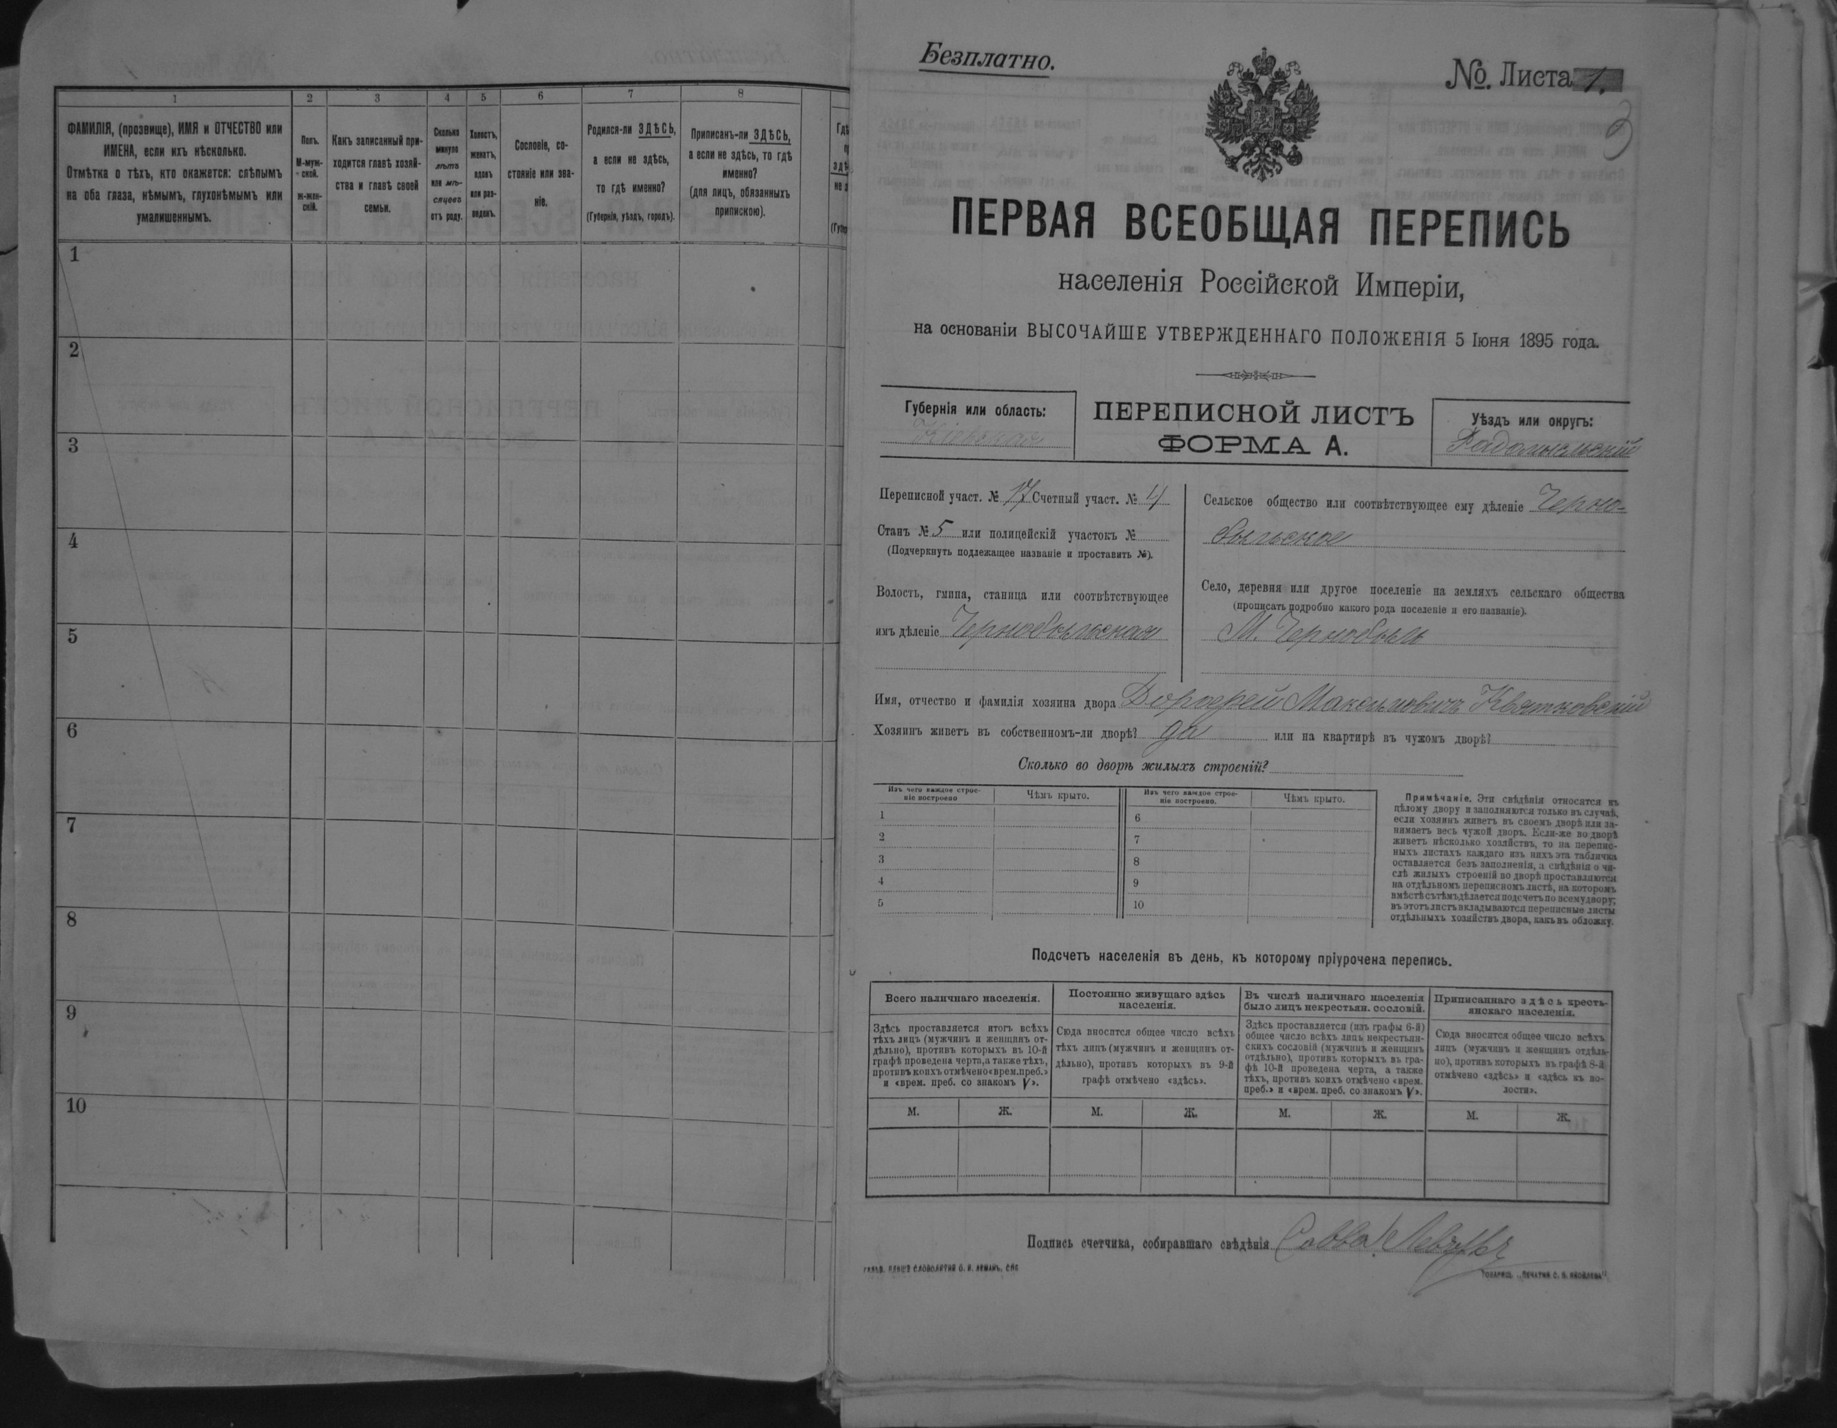 1 2 3 4 5 6 7 8
ФАМИЛІЯ, (прозвище), ИМЯ и ОТЧЕСТВО или
ИМЕНА, если ихъ нѣсколько.
Отмѣтка о тѣхъ, кто окажется: слѣпымъ
на оба глаза, нѣмымъ, глухонѣмымъ или
умалишеннымъ.
Полъ.
М-муж-
ской.
ж-жен-
скій.
Какъ записанный при-
ходится главѣ хозяй-
ства и главѣ своей
семьи.
Сколько
минуло
лѣтъ
или мѣ-
сяцевъ
отъ роду.
Холостъ,
женатъ,
вдовъ
или раз-
веденъ.
Сословіе, со-
стояніе или зва-
ніе.
Родился-ли ЗДѢСЬ,
а если не здѣсь,
то гдѣ именно?
(Губернія, уѣздъ, городъ).
Приписанъ-ли ЗДѢСЬ,
а если не здѣсь, то гдѣ
именно?
(для лицъ, обязанныхъ
припискою).
1
2
3
4
5
6
7
8
9
10
Безплатно.
№. Листа 1.
3
ПЕРВАЯ ВСЕОБЩАЯ ПЕРЕПИСЬ
населенія Россійской Имперіи,
на основаніи ВЫСОЧАЙШЕ УТВЕРЖДЕННАГО ПОЛОЖЕНІЯ 5 Іюня 1895 года.
Губернія или область:
Кіевская
ПЕРЕПИСНОЙ ЛИСТЪ
ФОРМА А.
Уѣздъ или округъ:
Радомысльскій
Переписной участ. № 17 Счетный участ. № 4
Станъ № 5 или полицейскій участокъ №
(Подчеркнуть подлежащее названіе и проставить №).
Волость, гмина, станица или соотвѣтствующее
имъ дѣленіе Чернобыльская
Сельское общество или соотвѣтствующее ему дѣленіе Черно-
быльское
Село, деревня или другое поселеніе на земляхъ сельскаго общества
(прописать подробно какого рода поселеніе и его названіе).
М. Чернобыль
Имя, отчество и фамилія хозяина двора Дорофей Максимовичъ Квятковскій
Хозяинъ живетъ въ собственномъ-ли дворѣ? да или на квартирѣ въ чужомъ дворѣ?
Сколько во дворѣ жилыхъ строеній?
Изъ чего каждое строе-
ніе построено
Чѣмъ крыто.
Изъ чего каждое строе-
ніе построено.
Чѣмъ крыто.
1 6
2 7
3 8
4 9
5 10
Примѣчаніе. Эти свѣдѣнія относятся къ
цѣлому двору и заполняются только въ случаѣ,
если хозяинъ живетъ въ своемъ дворѣ или за-
нимаетъ весь чужой дворъ. Если-же во дворѣ
живетъ нѣсколько хозяйствъ, то на перепис-
ныхъ листахъ каждаго изъ нихъ эта табличка
оставляется безъ заполненія, а свѣдѣнія о чи-
слѣ жилыхъ строеній во дворѣ проставляются
на отдѣльномъ переписномъ листѣ, на которомъ
вмѣстѣ съ тѣмъ дѣлается подсчетъ по всему двору;
въ этотъ листъ вкладываются переписные листы
отдѣльныхъ хозяйствъ двора, какъ въ обложку.
Подсчетъ населенія въ день, къ которому пріурочена перепись.
Всего наличнаго населенія.
Здѣсь проставляется итогъ всѣхъ
тѣхъ лицъ (мужчинъ и женщинъ от-
дѣльно), противъ которыхъ въ 10-й
графѣ проведена черта, а также тѣхъ,
противъ коихъ отмѣчено «врем. преб.»
и «врем. преб. со знакомъ V».
Постоянно живущаго здѣсь
населенія.
Сюда вносится общее число всѣхъ
тѣхъ лицъ (мужчинъ и женщинъ от-
дѣльно), противъ которыхъ въ 9-й
графѣ отмѣчено «здѣсь».
Въ числѣ наличнаго населенія
было лицъ некрестьян. сословій.
Здѣсь проставляется (изъ графы 6-й)
общее число всѣхъ лицъ некрестьян-
скихъ сословій (мужчинъ и женщинъ
отдѣльно), противъ которыхъ въ гра-
фѣ 10-й проведена черта, а также
тѣхъ, противъ коихъ отмѣчено «врем.
преб.» и «врем. преб. со знакомъ V».
Приписаннаго здѣсь кресть-
янскаго населенія.
Сюда вносится общее число всѣхъ
лицъ (мужчинъ и женщинъ отдѣль-
но), противъ которыхъ въ графѣ 8-й
отмѣчено «здѣсь» и «здѣсь къ во-
лости».
М. Ж. М. Ж. М. Ж. М. Ж.
Подпись счетчика, собиравшаго свѣдѣнія